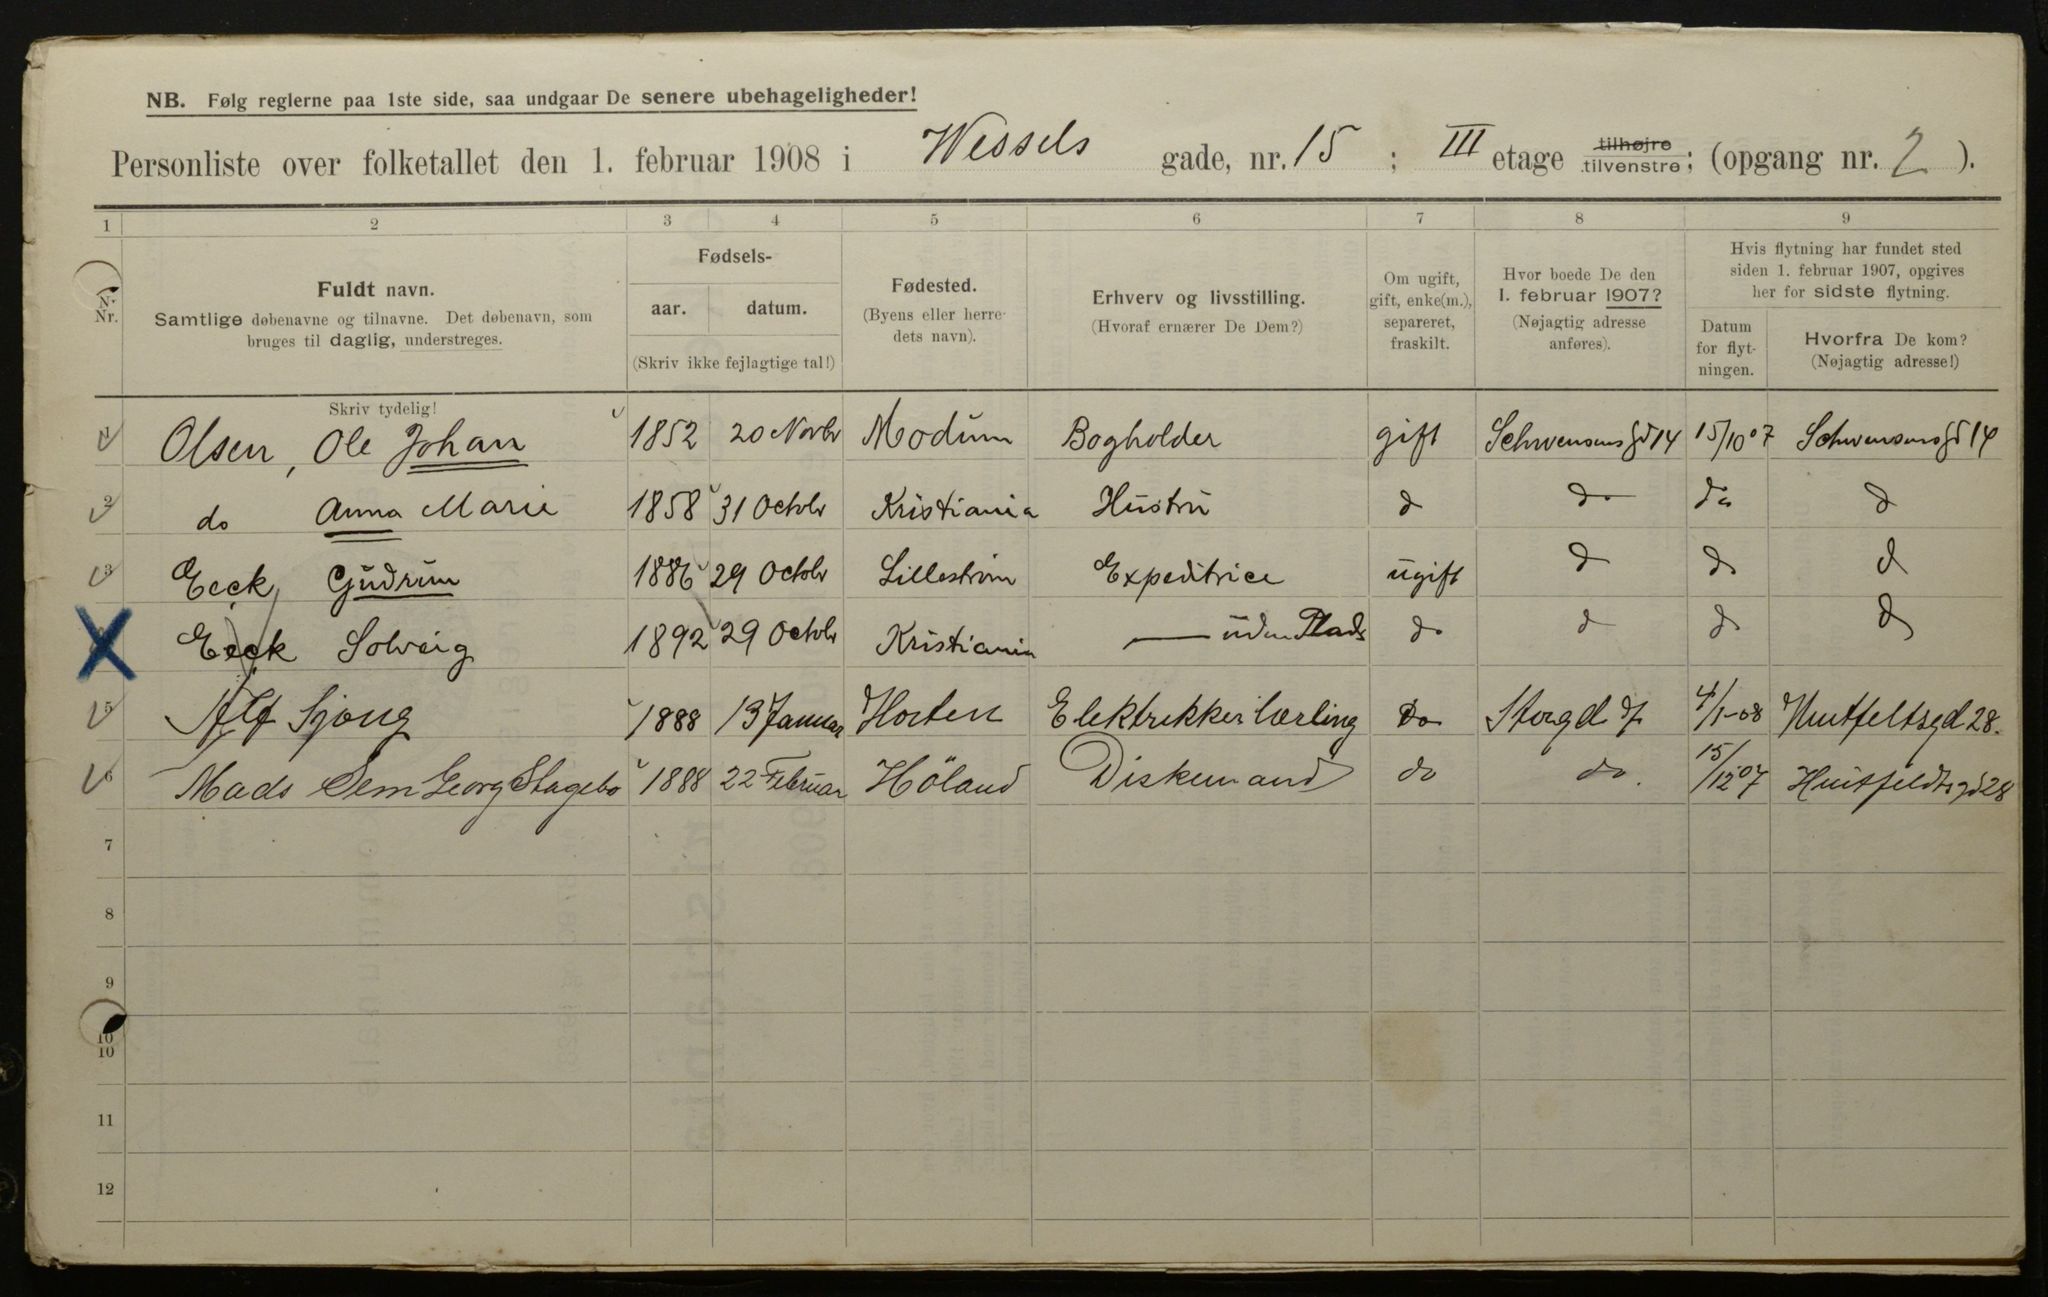 NB. Følg reglerne paa 1ste side, saa undgaar De senere ubehageligheder!
Personliste over folketallet den 1. februar 1908 i Wessels gade, nr. 15 ; III etage tilhøjre tilvenstre; (opgang nr. 2 ).
1 2 3 4 5 6 7 8 9
Nr. Nr.
Fuldt navn.
Samtlige døbenavne og tilnavne. Det døbenavn, som
bruges til daglig, understreges.
Skriv tydelig!
Fødsels-
aar. datum.
(Skriv ikke fejlagtige tal!)
Fødested.
(Byens eller herre-
dets navn).
Erhverv og livsstilling.
(Hvoraf ernærer De Dem?)
Om ugift,
gift, enke(m.),
separeret,
fraskilt.
Hvor boede De den
1. februar 1907?
(Nøjagtig adresse
anføres).
Hvis flytning har fundet sted
siden 1. februar 1907, opgives
her for sidste flytning.
Datum
for flyt-
ningen.
Hvorfra De kom?
(Nøjagtig adresse!)
1 Olsen, Ole Johan 1852 20 Novbr Modum Bogholder gift Schwensensgd 14 15/10 07 Schwensensgd 14
2 do Anna Marie 1858 31 Octobr Kristiania Hustru d do do d
3 Eeck, Gudrun 1886 29 Octobr Lillestrøm Expeditrice ugift d do d
Eeck Solveig 1892 29 Octobr Kristiania — uden Plads do d do d
5 Alf Sjong 1888 13 Januar Horten Elektrikker lærling Do Storgd 7 4/1-08 Huitfeltsgd 28.
6 Mads Sem Georg Skagebo 1888 22 Februar Höland Diskemand do do. 15/12 07 Huitfeldtsgd 28
7
8
9
10
10
11
12